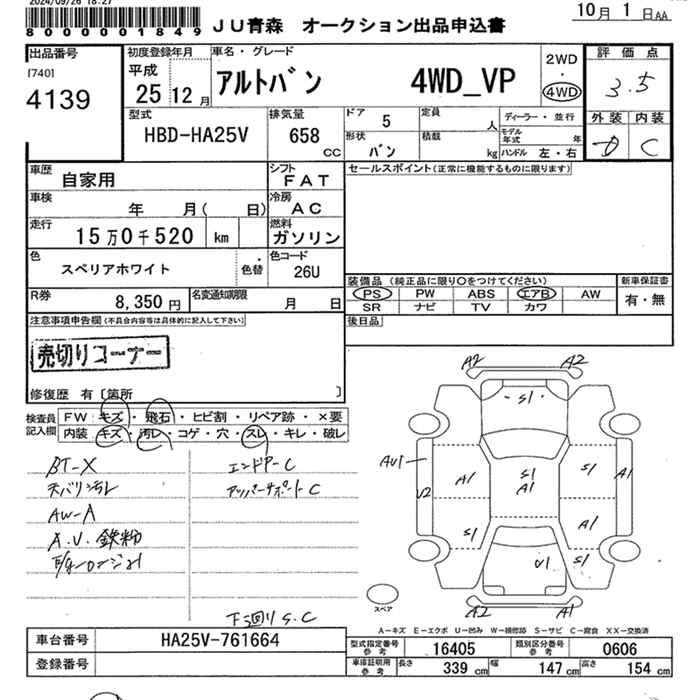 2024/09/26 18:27
8000001849
JU青森 オークション出品申込書
10月 1日AA
出品番号
[740]
4139
初度登録年月
平成
25 12月
車名・グレード
アルトバン 4WD_VP
2WD
・
4WD
評価点
3.5
外装 内装
D C
型式
HBD-HA25V
排気量
658
CC
ドア 5
形状 バン
定員 人
積載 kg
ディーラー・並行
モデル年式 年
ハンドル 左・右
車歴 自家用
シフト FAT
車検 年 月( 日)
冷房 AC
走行 15万0千520 km
燃料 ガソリン
色 スペリアホワイト
・
色替
色コード 26U
R券 8,350円
名変通知期限 月 日
セールスポイント(正常に機能するものに限ります)
装備品(純正品に限り○をつけてください)
新車保証書
PS PW ABS エアB AW
SR ナビ TV カワ
有・無
後日品
注意事項申告欄(不具合内容等は具体的に記入して下さい)
売切りコーナー
修復歴 有〔箇所 〕
検査員記入欄
FW キズ・飛石・ヒビ割・リペア跡・×要
内装 キズ・汚レ・コゲ・穴・スレ・キレ・破レ
BT-X
天バリ汚レ
AW-A
A.U.鉄粉
エンドアーC
アッパーサポートC
下回りS.C
A2 A2
S1
AU1
U2
A1 S1 A1 S1 A1
S1 A1
U1 S1
A2 A1
スペア
A-キズ E-エクボ U-凹み W-補修跡 S-サビ C-腐食 XX-交換済
車台番号 HA25V-761664
登録番号
型式指定番号 参考 16405
類別区分番号 参考 0606
車検証明用 参考 長さ 339 cm 幅 147 cm 高さ 154 cm